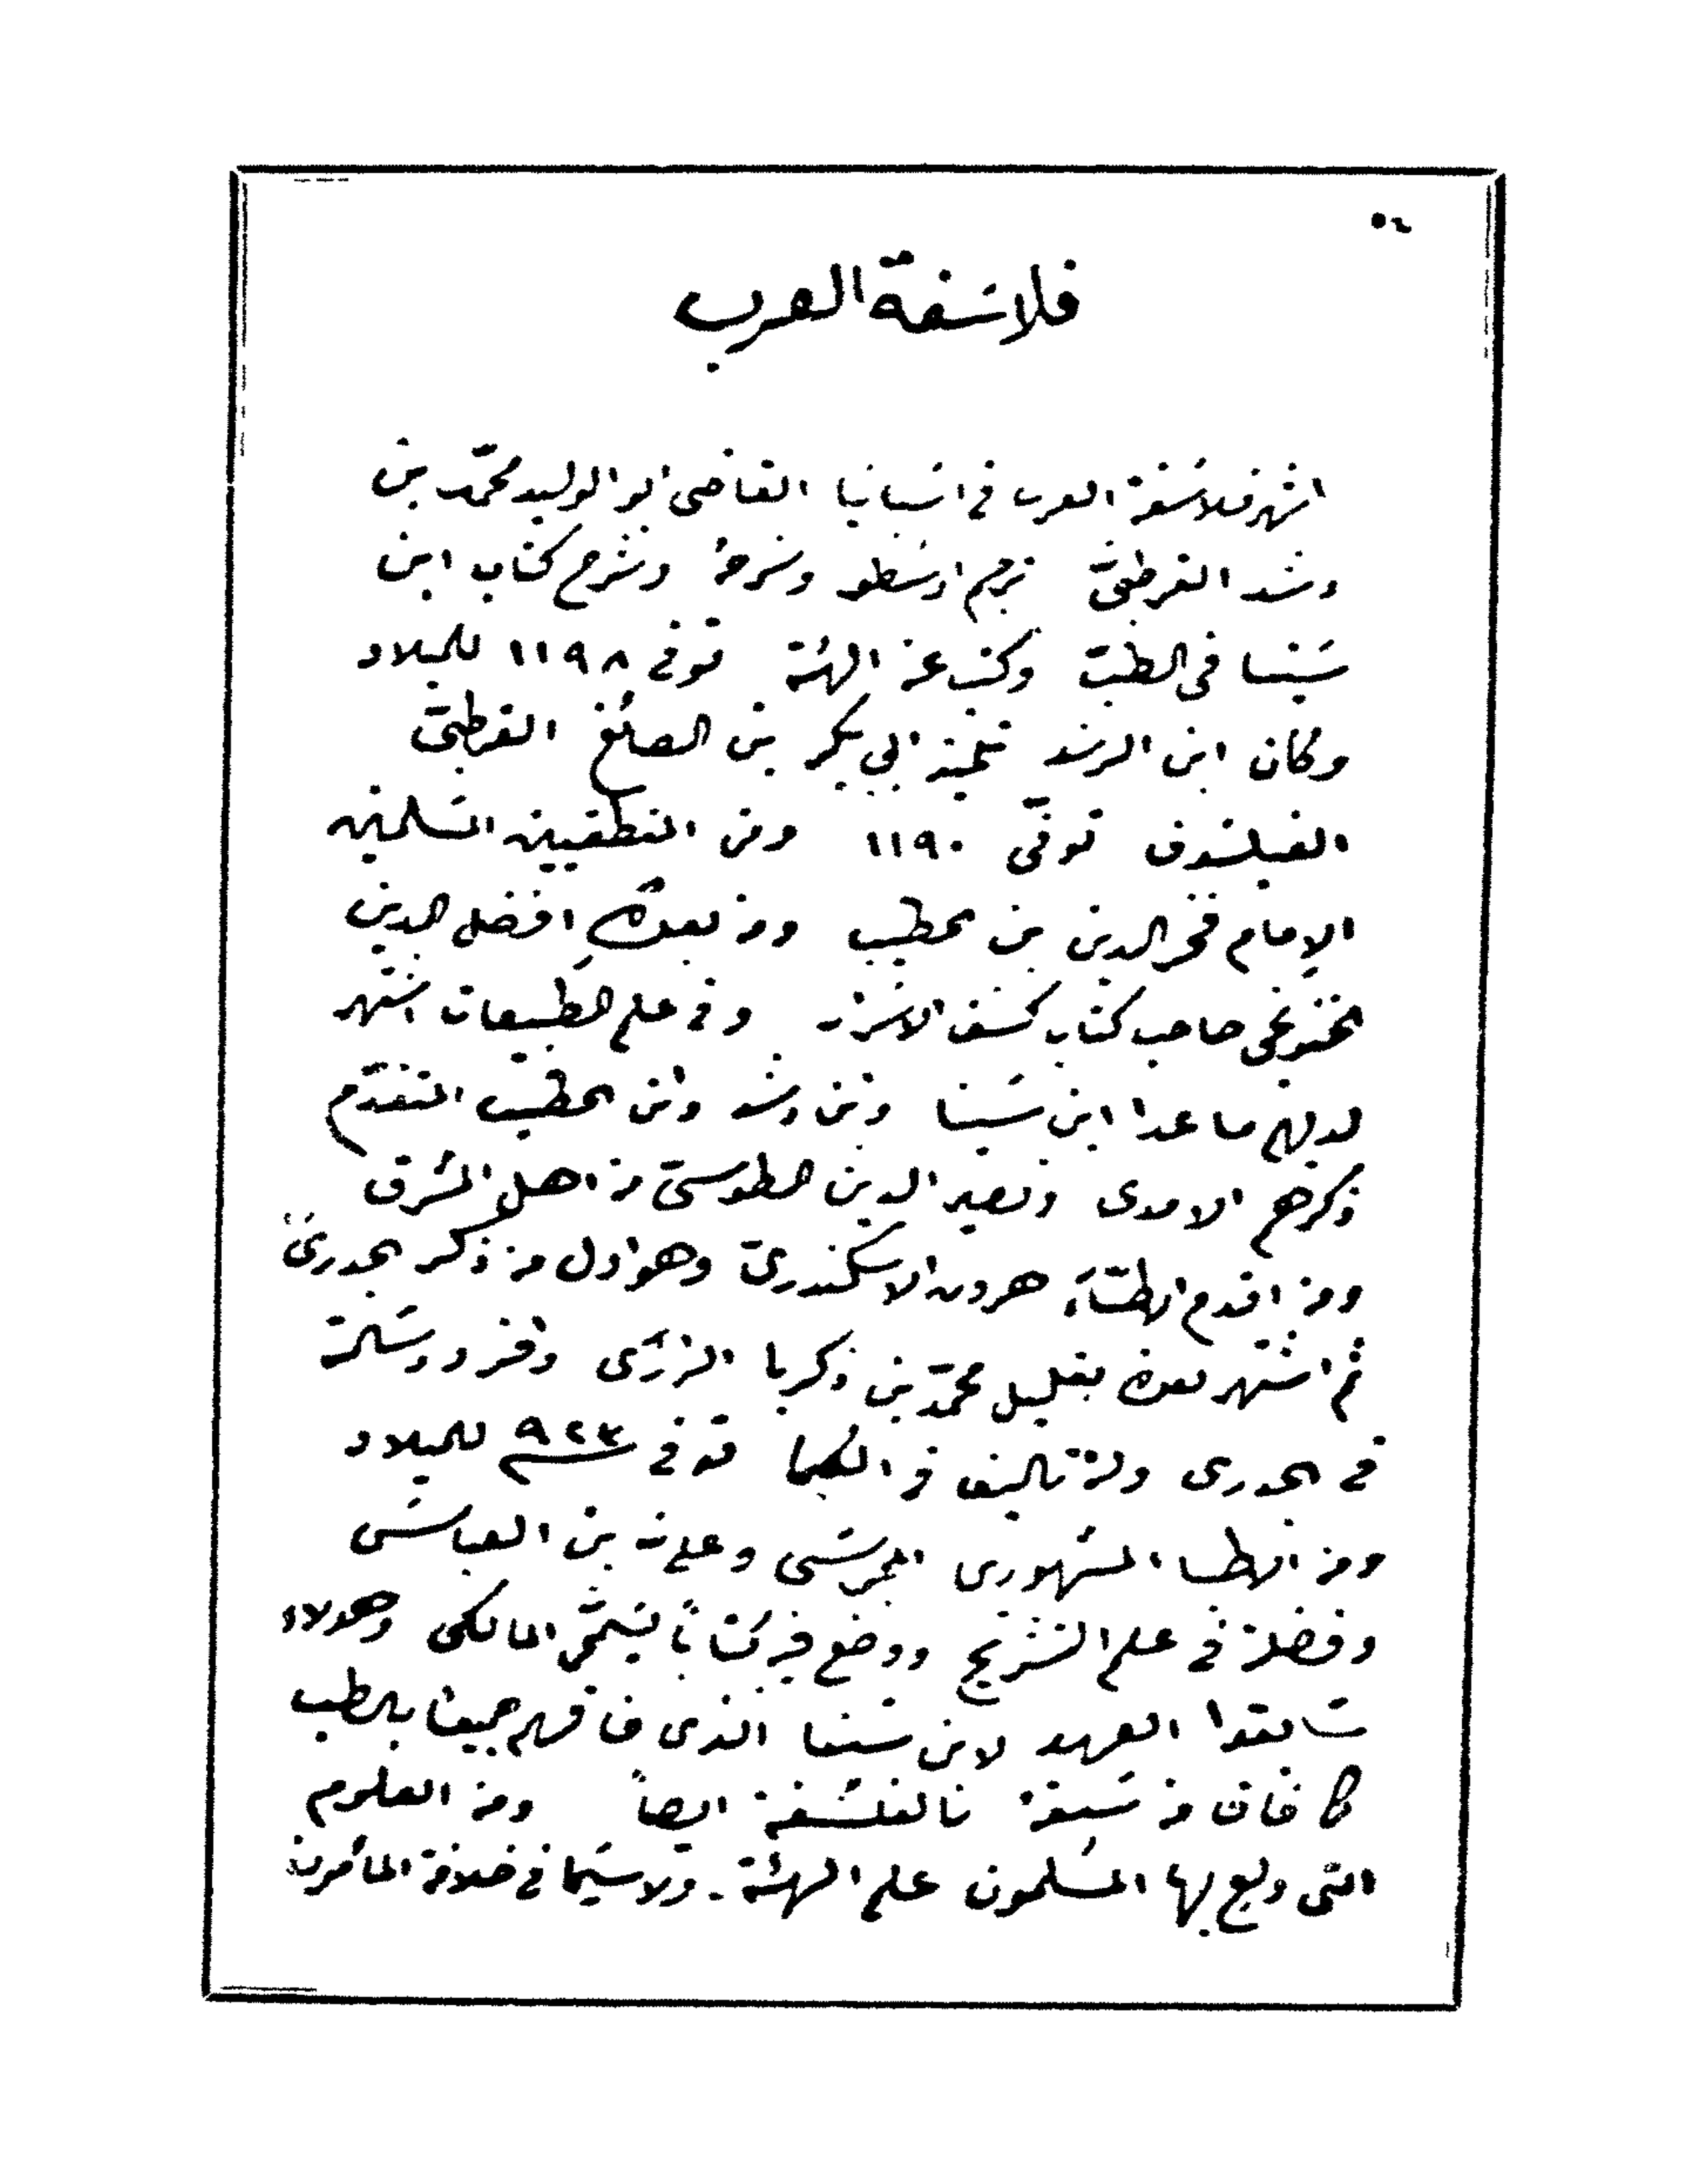 ٥٤
فلاسفة العرب
اشهر فلاسفة العرب في اسبانيا القاضى ابو الوليد محمّد بن
رشد القرطبىّ ترجم ارسطو وشرحهُ وشرح كتاب ابن
سينا فى الطبّ وكتب عن الهئة توفى ١١٩٨ للميلاد
وكان ابن الرشد تلميذ ابي بكر بن الصائغ القرطبىّ
الفيلسوف توفّى ١١٩٠ ومن المنطقيين المسلمين
الإمام فخر الدين بن الخطيب ومن بعدهِ افضل الدين
الخنونجى صاحب كتاب كشف الاسرار وفى علم الطبيعات اشتهر
لديهم ما عدا ابن سينا وبن رشد وابن الخطيب المتقدّم
ذكرهم الامدى ونصير الدين الطوسىّ من اهل المشرق
ومن اقدم الاطبّاء هرون الاسكندرىّ وهو اول من ذكر الجدرىّ
ثم اشتهر بعده بقليل محمّد بن زكريا الرازى وافرد رسالة
فى الجدرى ولهُ تاليف فى الكيميا توفى سنة ٩٢٣ للميلاد
ومن الاطبا المشهورى المجرسى وعلى بن العباس
وفضلهُ فى علم التشريح ووضع فيه كتاباً يسمّى المالكى وهولاء
سابقوا العهد لابن سينا الذى فاقهم جميعًا بالطب
كما فاق من سبقهُ بالفلسفة ايضاً ومن العلوم
التى ولع بها المسلمون علم الهئة - ولا سيّما فى خلافة المأمون